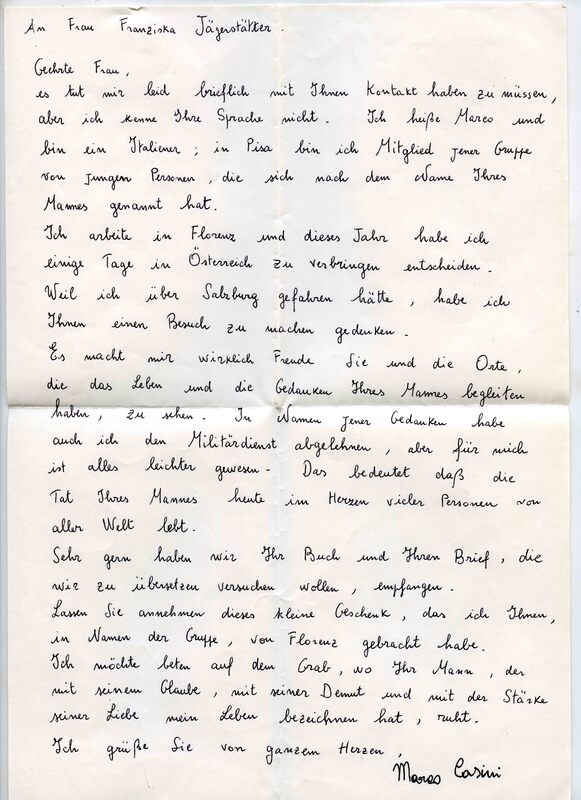 An Frau Franziska Jägerstätter.
Geehrte Frau,
es tut mir leid brieflich mit Ihnen Kontakt haben zu müssen,
aber ich kenne Ihre Sprache nicht. Ich heiße Marco und
bin ein Italiener; in Pisa bin ich Mitglied jener Gruppe
von jungen Personen, die sich nach dem Name Ihres
Mannes genannt hat.
Ich arbeite in Florenz und dieses Jahr habe ich
einige Tage in Österreich zu verbringen entscheiden.
Weil ich über Salzburg gefahren hätte, habe ich
Ihnen einen Besuch zu machen gedenken.
Es macht mir wirklich Freude Sie und die Orte,
die das Leben und die Gedanken Ihres Mannes begleiten
haben, zu sehen. In Namen jener Gedanken habe
auch ich den Militärdienst abgelehnen, aber für mich
ist alles leichter gewesen. Das bedeutet daß die
Tat Ihres Mannes heute im Herzen vieler Personen von
aller Welt lebt.
Sehr gern haben wir Ihr Buch und Ihren Brief, die
wir zu übersetzen versuchen wollen, empfangen.
Lassen Sie annehmen dieses kleine Geschenk, das ich Ihnen,
in Namen der Gruppe, von Florenz gebracht habe.
Ich möchte beten auf dem Grab, wo Ihr Mann, der
mit seinem Glaube, mit seiner Demut und mit der Stärke
seiner Liebe mein Leben bezeichnen hat, ruht.
Ich grüße Sie von ganzem Herzen,
Marco Casini